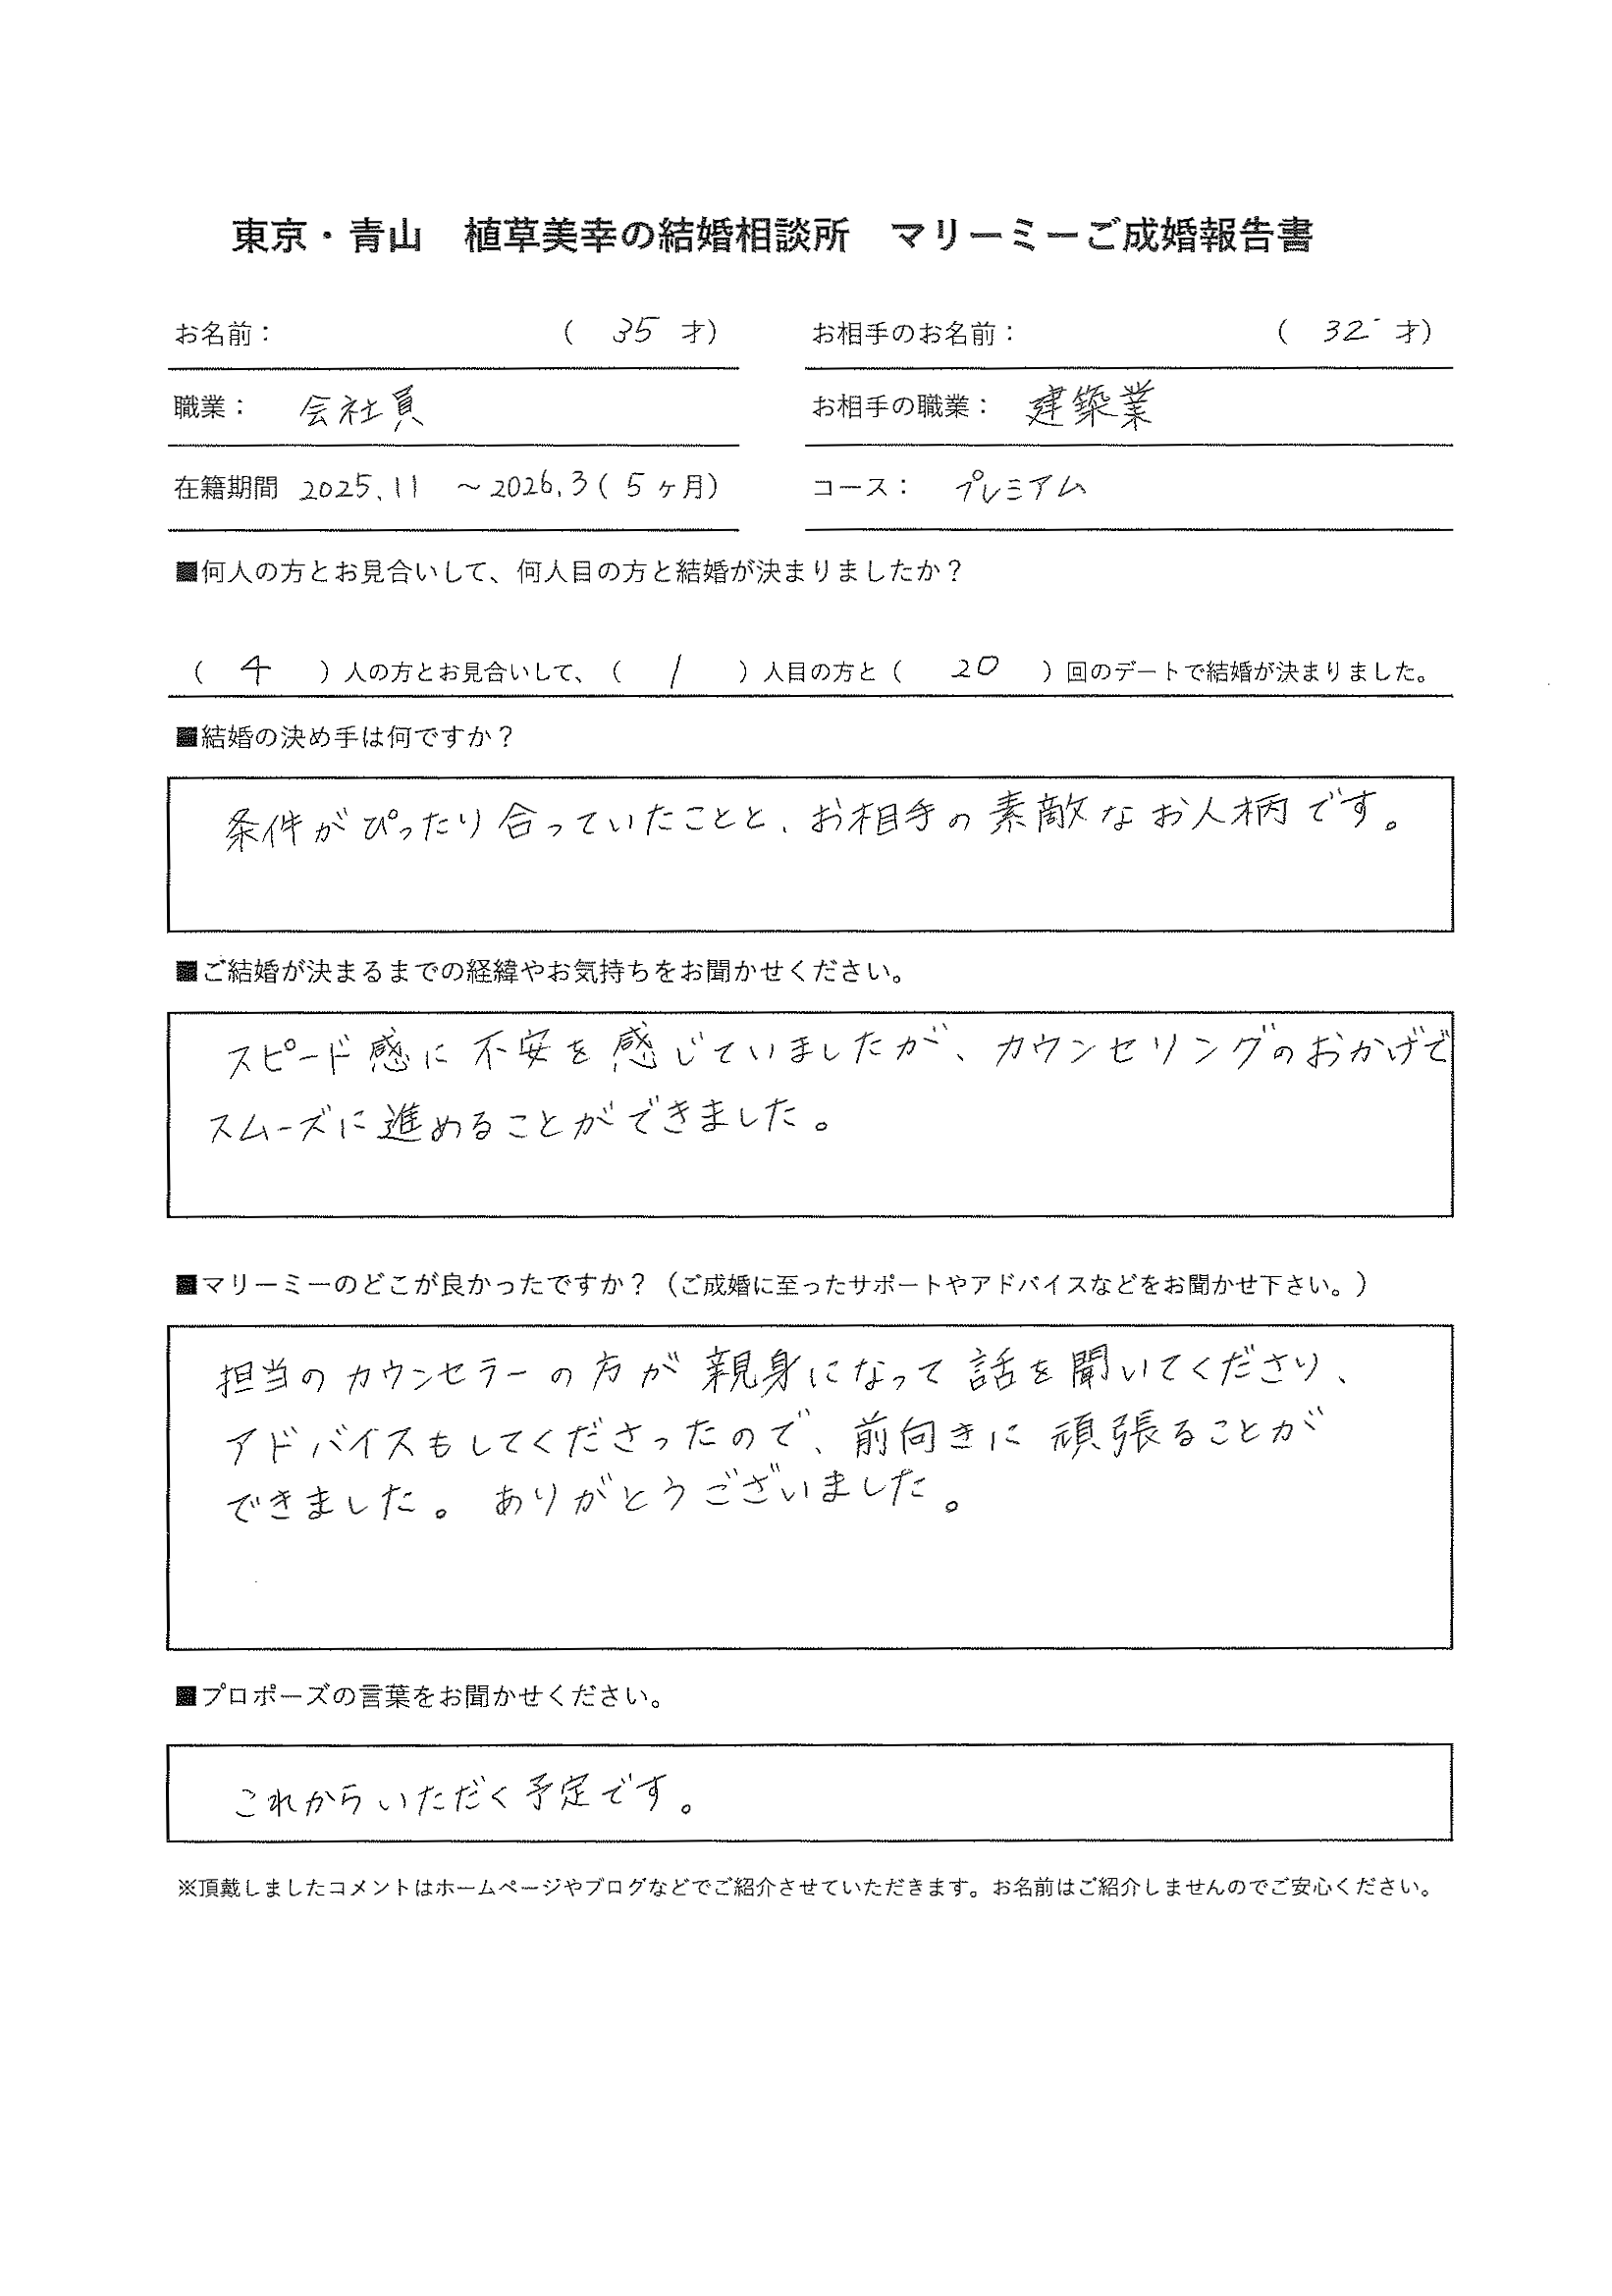 東京・青山　植草美幸の結婚相談所　マリーミーご成婚報告書
お名前：　（　35　才）　お相手のお名前：　（　32　才）
職業：　会社員　お相手の職業：　建築業
在籍期間　2025.11　～2026.3（　5　ヶ月）　コース：　プレミアム
■何人の方とお見合いして、何人目の方と結婚が決まりましたか？
（　4　）人の方とお見合いして、（　1　）人目の方と（　20　）回のデートで結婚が決まりました。
■結婚の決め手は何ですか？
条件がぴったり合っていたことと、お相手の素敵なお人柄です。
■ご結婚が決まるまでの経緯やお気持ちをお聞かせください。
スピード感に不安を感じていましたが、カウンセリングのおかげで
スムーズに進めることができました。
■マリーミーのどこが良かったですか？（ご成婚に至ったサポートやアドバイスなどをお聞かせ下さい。）
担当のカウンセラーの方が親身になって話を聞いてくださり、
アドバイスもしてくださったので、前向きに頑張ることが
できました。ありがとうございました。
■プロポーズの言葉をお聞かせください。
これからいただく予定です。
※頂戴しましたコメントはホームページやブログなどでご紹介させていただきます。お名前はご紹介しませんのでご安心ください。